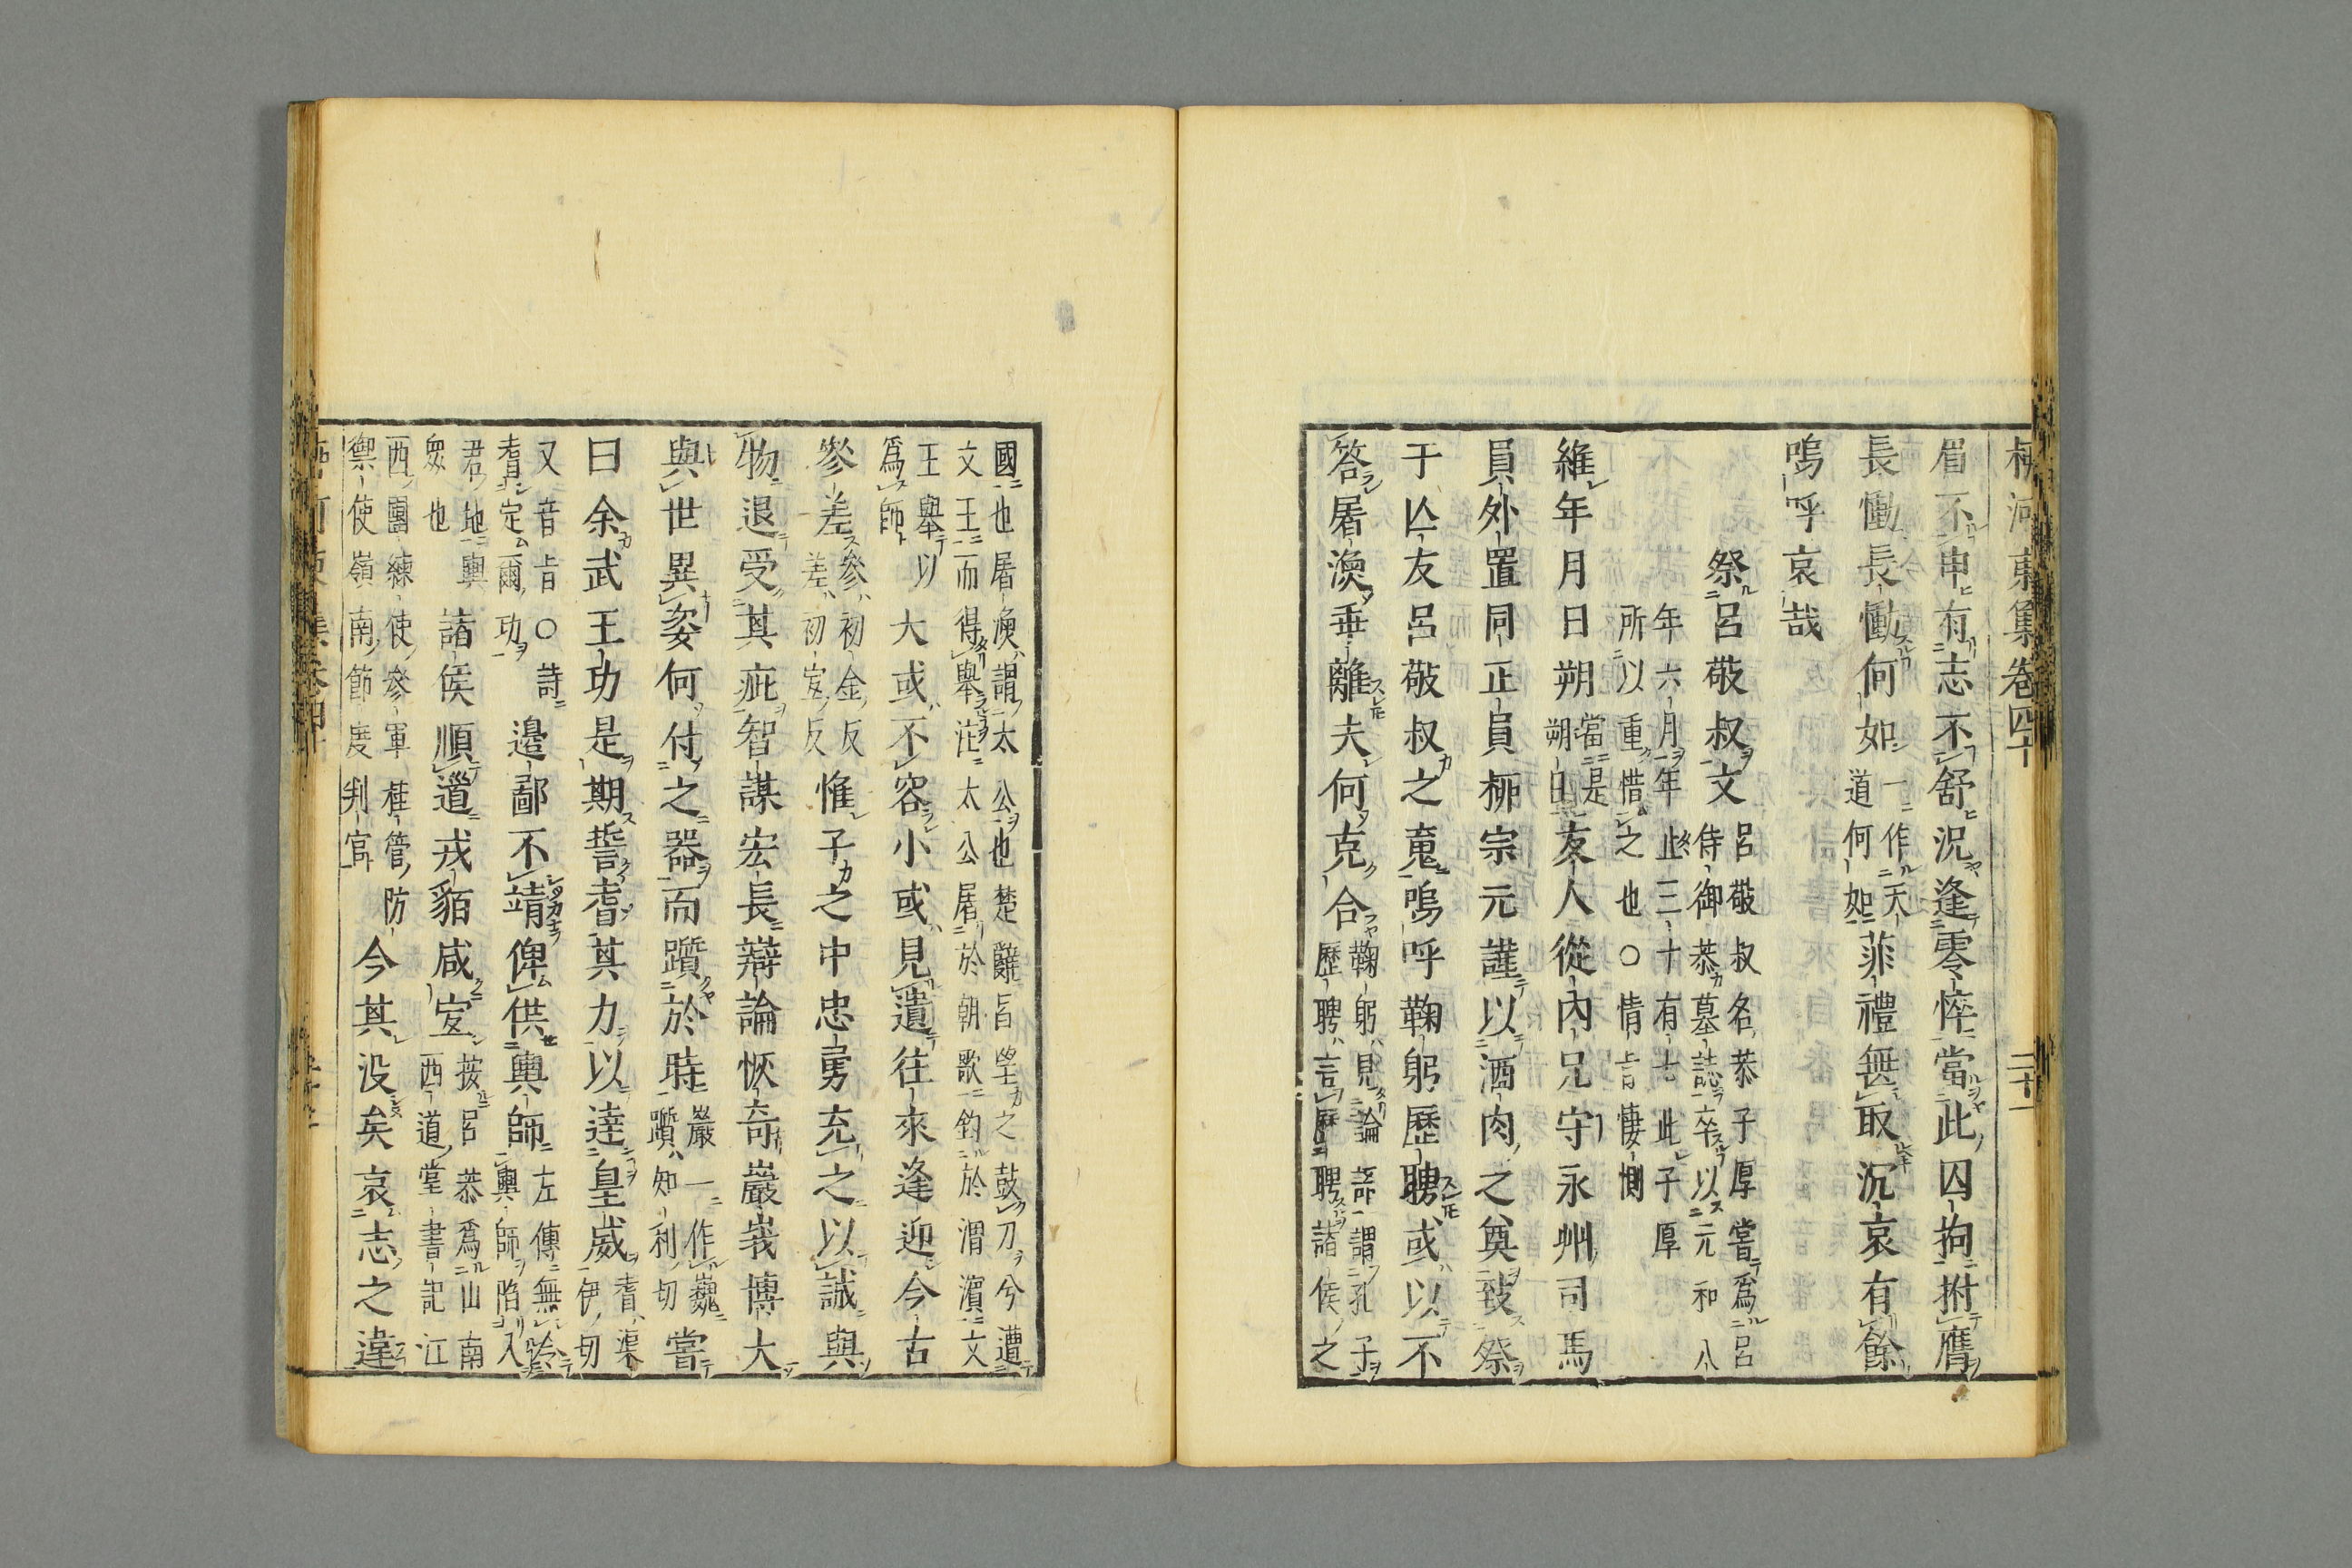 柳河東集卷四十
二十一
眉不申有志不舒況逢零悴當此囚拘拊膺
長慟長慟何如一作天道何如菲禮無取沉哀有餘
嗚呼哀哉
祭呂敬叔文呂敬叔名恭子厚嘗爲呂侍御恭墓誌卒以元和八
年六月年止三十有七此子厚所以重惜之也○情旨悽惻
維年月日朔當是朔日友人從内兄守永州司馬
員外置同正員柳宗元謹以酒肉之奠致祭
于亡友呂敬叔之䰟嗚呼鞠躬歷聘或以不
答屠漁垂離夫何克合鞠躬見論語謂孔子歷聘言歷聘諸侯之
國也屠漁謂太公也楚辭呂望之鼓刀兮遭文王而得舉注太公屠於朝歌釣於渭濵文
王舉以爲師大或不容小或見遺往來逢迎今古
參差參初金反差初宜反惟子之中忠勇充之以誠與
物退受其疵智謀宏長辯論恢奇巖峩博大
與世異姿何付之器而躓於時巖一作巍躓知利切嘗
曰余武王功是期誓耆其力以達皇威耆渠伊切
又音旨○詩耆定爾功邊鄙不靖俾供輿師左傳無令輿師陷入
君地輿衆也諸侯順道戎貊咸宜按呂恭爲山南西道掌書記江
西團練使參軍桂管防禦使嶺南節度判官今其没矣哀志之違